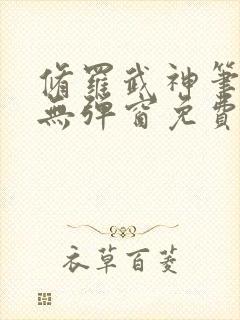 脩羅武神筆
無彈窗免費
衣草百菱